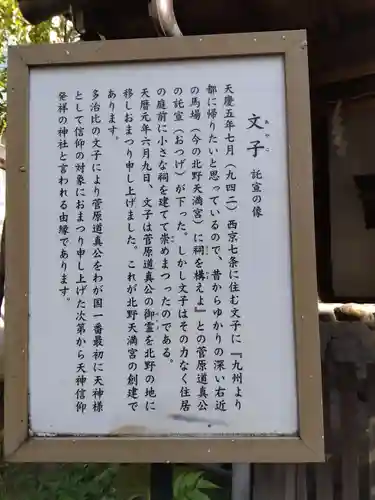 文子 託宣の像
あやこ
天慶五年七月(九四二)西京七条に住む文子に『九州より
都に帰りたいと思っているので、昔からゆかりの深い右近
の馬場(今の北野天満宮)に祠を構えよ』との菅原道真公
の託宣(おつげ)が下った。しかし文子はその力なく住居
の庭前に小さな祠を建てて崇めまつったのである。
天暦元年六月九日、文子は菅原道真公の御霊を北野の地に
移しおまつり申し上げました。これが北野天満宮の創建で
あります。
多治比の文子により菅原道真公をわが国一番最初に天神様
として信仰の対象におまつり申し上げた次第から天神信仰
発祥の神社と言われる由縁であります。